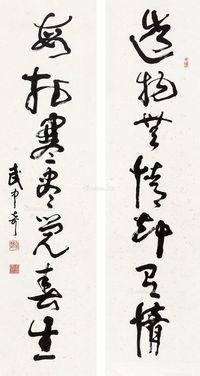 造物无情却有情
每于寒尽觉春生
武中奇